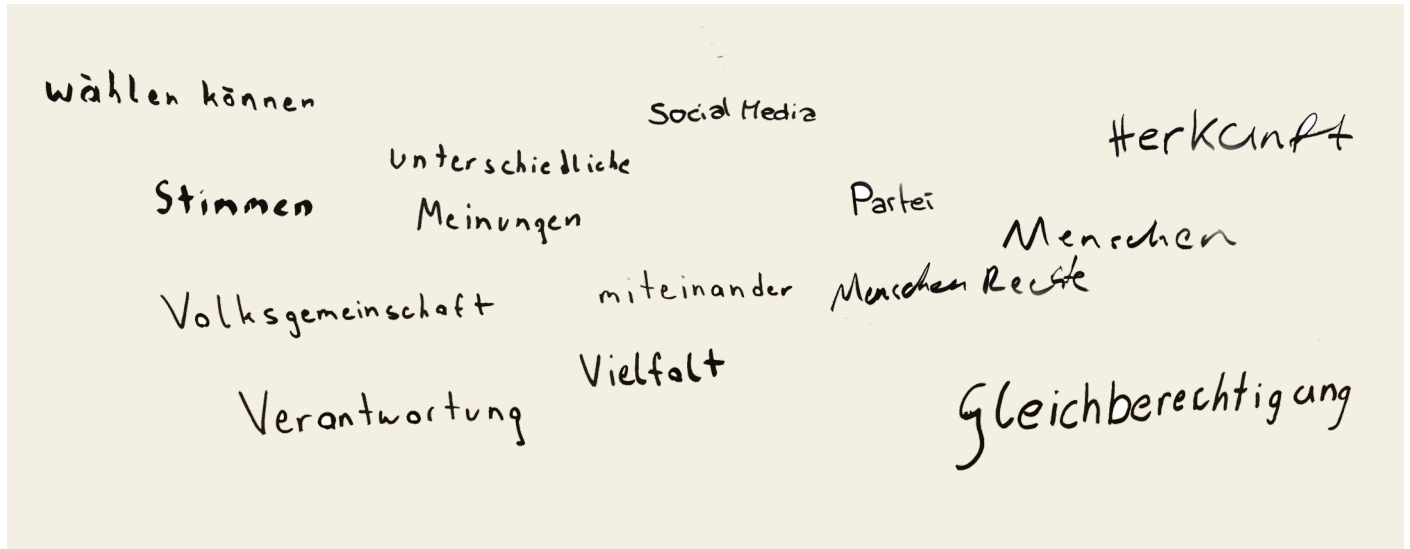 wählen können
Social Media
Herkunft
unterschiedliche
Meinungen
Stimmen
Partei
Menschen
Volksgemeinschaft
miteinander
Menschen Rechte
Vielfalt
Verantwortung
Gleichberechtigung